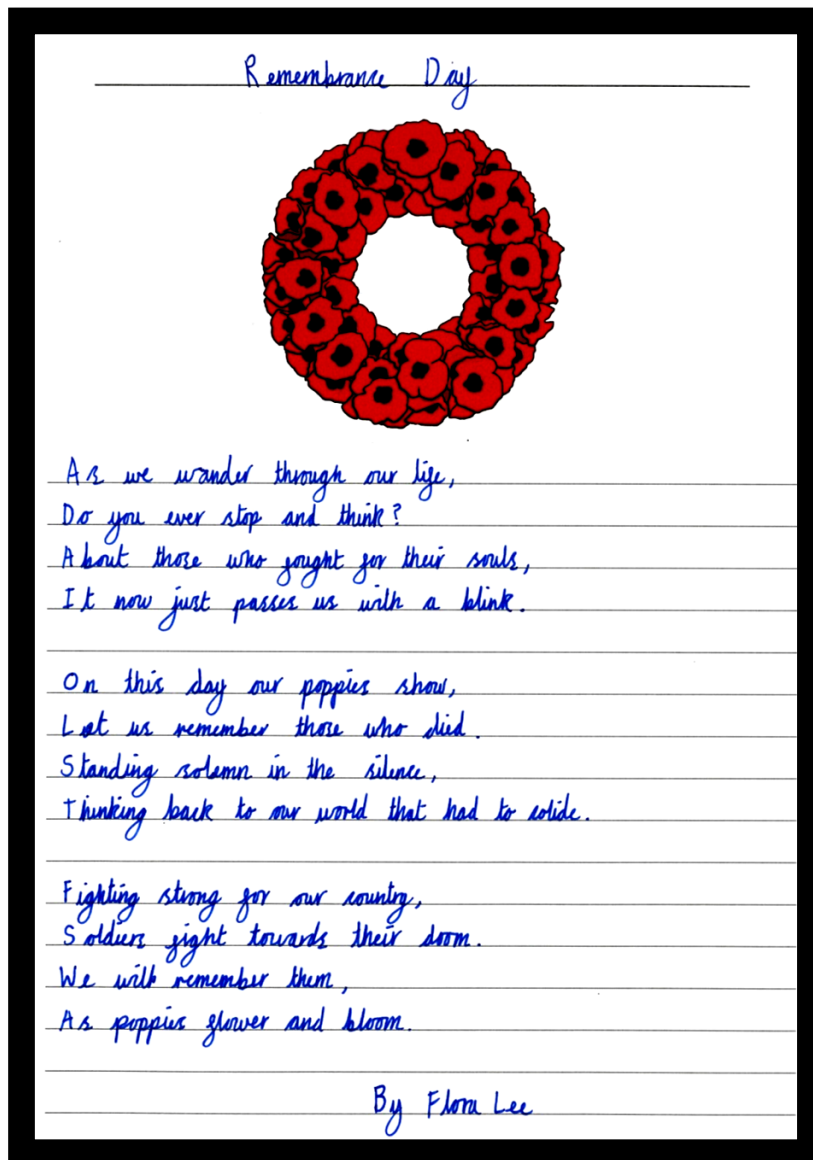 Remembrance Day
As we wander through our life,
Do you ever stop and think?
About those who fought for their souls,
It now just passes us with a blink.
On this day our poppies show,
Let us remember those who died.
Standing solemn in the silence,
Thinking back to our world that had to colide.
Fighting strong for our country,
Soldiers fight towards their doom.
We will remember them,
As poppies flower and bloom.
By Flora Lee